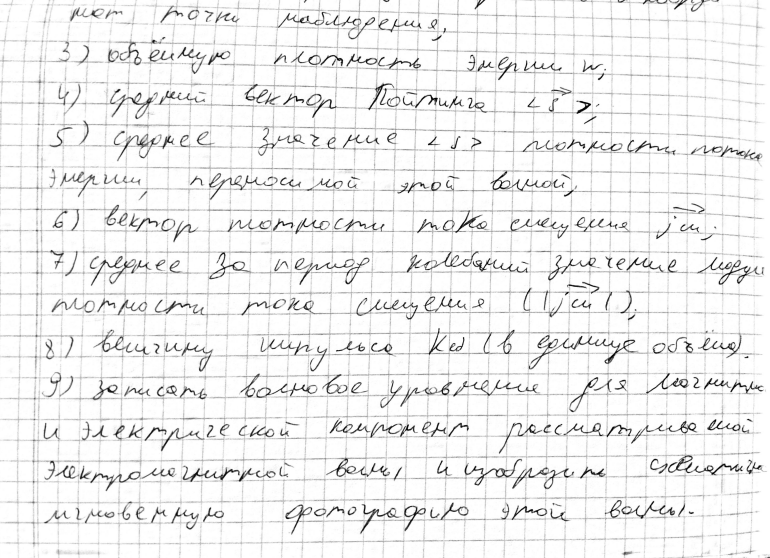 нат точки наблюдения;
3) объёмную плотность энергии w;
4) средний вектор Пойтинга <S>;
5) среднее значение <S> плотности потока
энергии, переносимой этой волной;
6) вектор плотности тока смещения jсм;
7) среднее за период колебаний значение модул
плотности тока смещения (|jсм|);
8) величину импульса Kед (в единице объёма).
9) записать волновое уравнение для магнитн
и электрической компонент рассматриваемой
электромагнитной волны и изобразить схематичн
мгновенную фотографию этой волны.